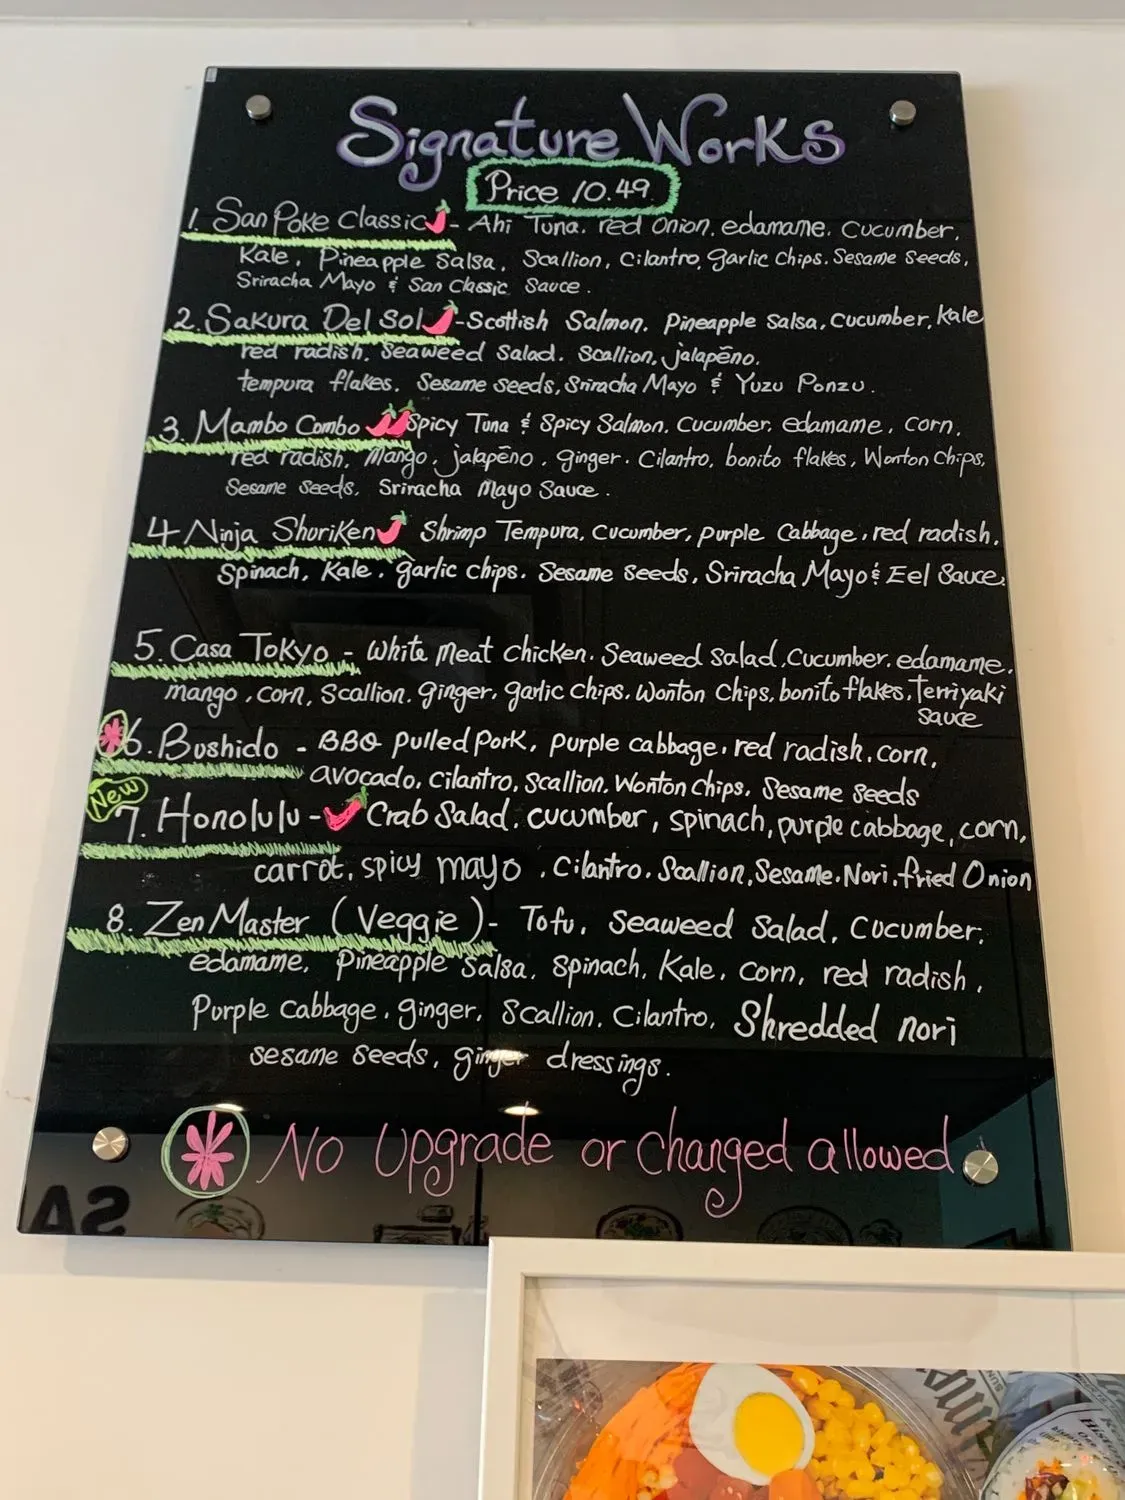 Signature Works
Price 10.49
1. San Poke Classic - Ahi Tuna. red onion, edamame. Cucumber,
Kale, Pineapple Salsa, Scallion, Cilantro, garlic Chips. Sesame Seeds,
Sriracha Mayo & San Classic Sauce.
2. Sakura Del Sol - Scottish Salmon. Pineapple Salsa, Cucumber, Kale
red radish. Seaweed Salad. Scallion, jalapēno.
tempura flakes. Sesame seeds, Sriracha Mayo & Yuzu Ponzu.
3. Mambo Combo Spicy Tuna & Spicy Salmon. Cucumber. edamame, corn,
red radish, Mango, jalapēno. ginger. Cilantro. bonito flakes, Wonton Chips,
Sesame Seeds, Sriracha Mayo Sauce.
4 Ninja Shuriken Shrimp Tempura, Cucumber, purple Cabbage, red radish,
Spinach, Kale. garlic chips. Sesame seeds, Sriracha Mayo & Eel Sauce.
5. Casa Tokyo - White Meat chicken. Seaweed Salad, Cucumber. edamame.
mango, corn, Scallion. ginger. garlic chips. Wonton Chips, bonito flakes, Terriyaki
Sauce
6. Bushido - BBQ Pulled Pork, purple cabbage. red radish. corn,
avocado, cilantro, scallion, Wonton Chips, Sesame seeds
New
7. Honolulu - Crab Salad, cucumber, spinach, purple cabbage, corn,
carrot, spicy mayo, Cilantro. Scallion, Sesame. Nori, fried Onion
8. Zen Master (Veggie) - Tofu, Seaweed Salad, Cucumber,
edamame, Pineapple Salsa, Spinach, Kale, corn, red radish,
Purple cabbage, ginger, Scallion, Cilantro, Shredded nori
sesame seeds, ginger dressings.
No Upgrade or Changed allowed